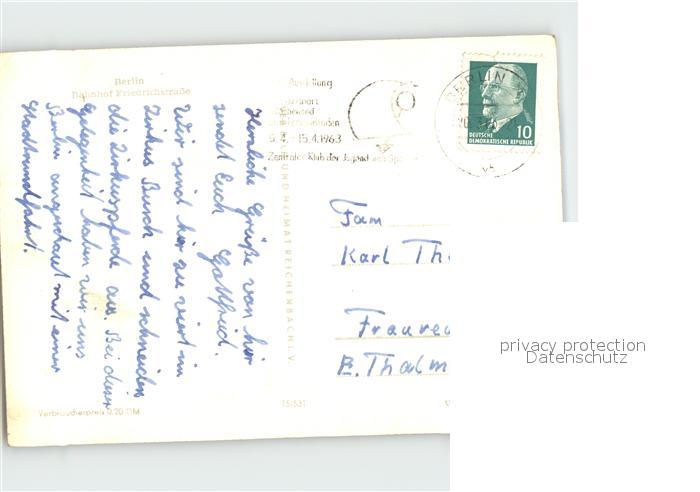 Berlin
Bahnhof Friedrichstraße
Herzliche Grüße von hier
sendet Euch Gottfried.
Wir sind hier zu viert im
Zirkus Busch und schneiden
die Zirkuspferde aus. Bei dieser
Gelegenheit haben wir uns
Berlin angeschaut mit einer
Stadtrundfahrt.
Verbraucherpreis 0,20 DM
15/531
UND HEIMAT REICHENBACH E.V.
15.4.1963
Zentraler Klub der Jugend und
BERLIN
DEUTSCHE
DEMOKRATISCHE REPUBLIK
10
Fam
Karl Th
Fraureu
E. Thälm
privacy protection
Datenschutz